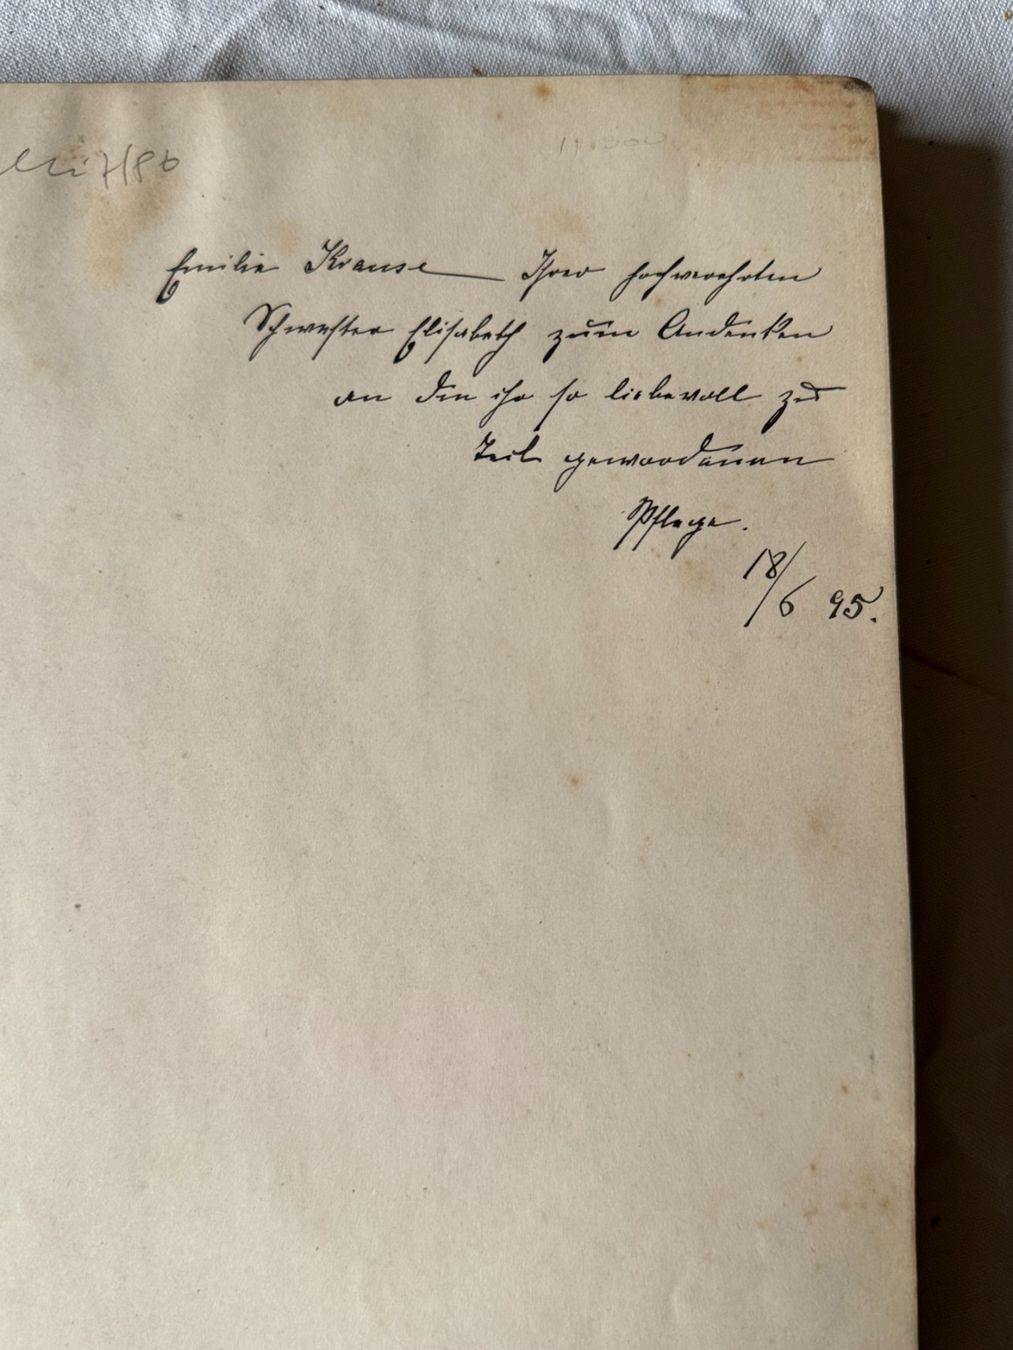 7/86
11.000
Emilie Krause Ihrer hochverehrten
Schwester Elisabeth zum Andenken
an die ihr so liebevoll zu
Teil gewordenen
Pflege.
18/6 95.